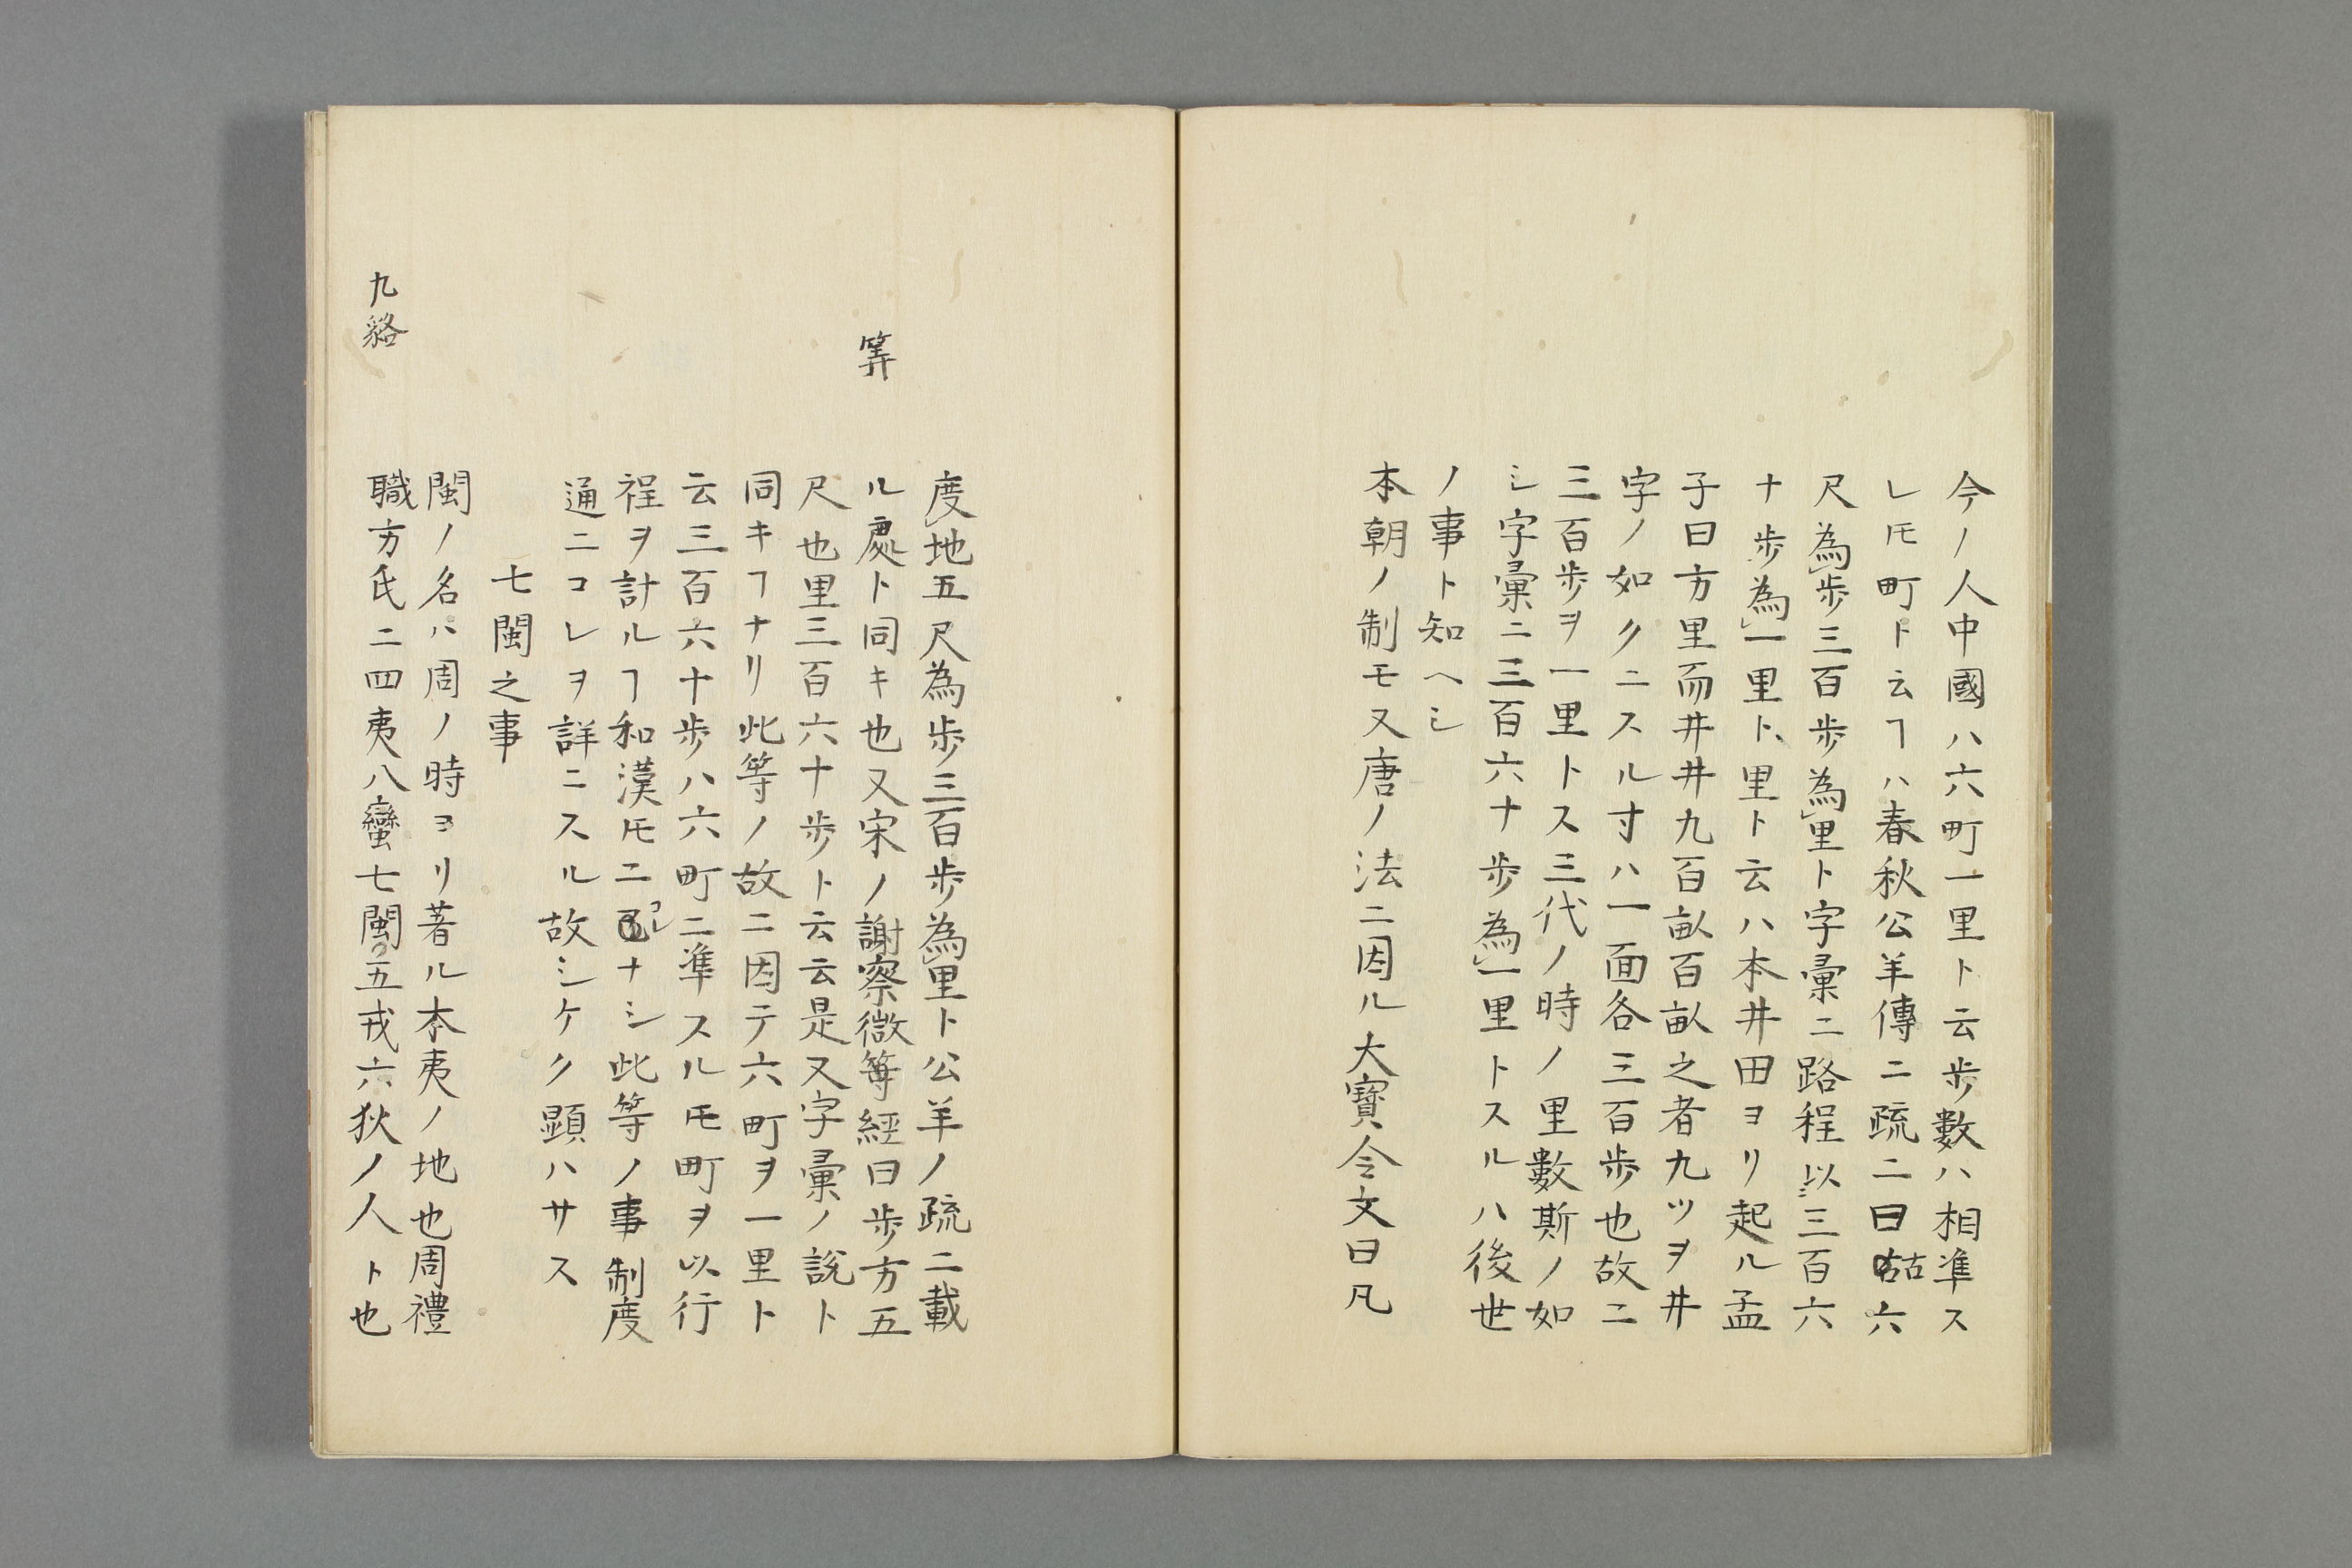 今ノ人中國ハ六町一里ト云歩數ハ相準ス
レㇳモ町ト云ヿハ春秋公羊傳ニ疏ニ曰古六
尺為歩三百歩為里ト字彙ニ路程以三百六
十歩為一里ト、里ト云ハ本井田ヨリ起ル孟
子曰方里而井井九百畝百畝之者九ツヲ井
字ノ如クニスル寸ハ一面各三百歩也故ニ
三百歩ヲ一里トス三代ノ時ノ里數斯ノ如
シ字彙ニ三百六十歩為一里トスルハ後世
ノ事ト知ヘシ
本朝ノ制モ又唐ノ法ニ因ル大寶令文曰凡
度地五尺為歩三百歩為里ト公羊ノ疏ニ載
筭
ル處ト同キ也又宋ノ謝察微等經曰歩方五
尺也里三百六十歩ト云云是又字彙ノ説ト
同キヿナリ此等ノ故ニ因テ六町ヲ一里ト
云三百六十歩ハ六町ニ準スルㇳモ町ヲ以行
程ヲ計ルヿ和漢ㇳモニコレナシ此等ノ事制度
通ニコレヲ詳ニスル故シケク顕ハサス
七閩之事
閩ノ名ハ周ノ時ヨリ著ル本夷ノ地也周禮
九貉
職方氏ニ四夷八蠻七閩五戎六狄ノ人ト也